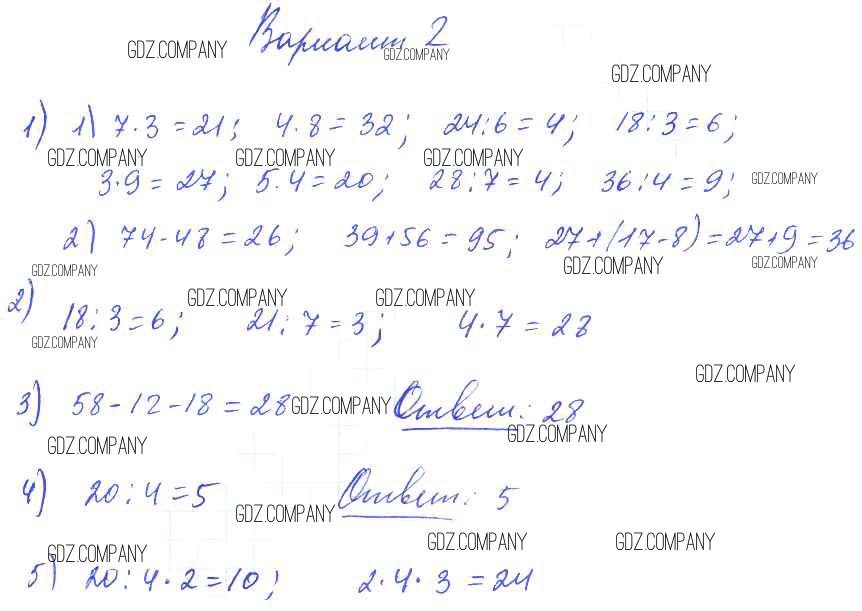 Вариант 2
GDZ.COMPANY GDZ.COMPANY
GDZ.COMPANY
1) 1) 7·3=21; 4·8=32; 24:6=4; 18:3=6;
GDZ.COMPANY GDZ.COMPANY GDZ.COMPANY
3·9=27; 5·4=20; 28:7=4; 36:4=9; GDZ.COMPANY
2) 74-48=26; 39+56=95; 27+(17-8)=27+9=36
GDZ.COMPANY GDZ.COMPANY GDZ.COMPANY
GDZ.COMPANY GDZ.COMPANY
2) 18:3=6; 21:7=3; 4·7=28
GDZ.COMPANY
GDZ.COMPANY
3) 58-12-18=28 GDZ.COMPANY Ответ: 28
GDZ.COMPANY GDZ.COMPANY
4) 20:4=5 Ответ: 5
GDZ.COMPANY
GDZ.COMPANY GDZ.COMPANY GDZ.COMPANY
5) 20:4·2=10; 2·4·3=24